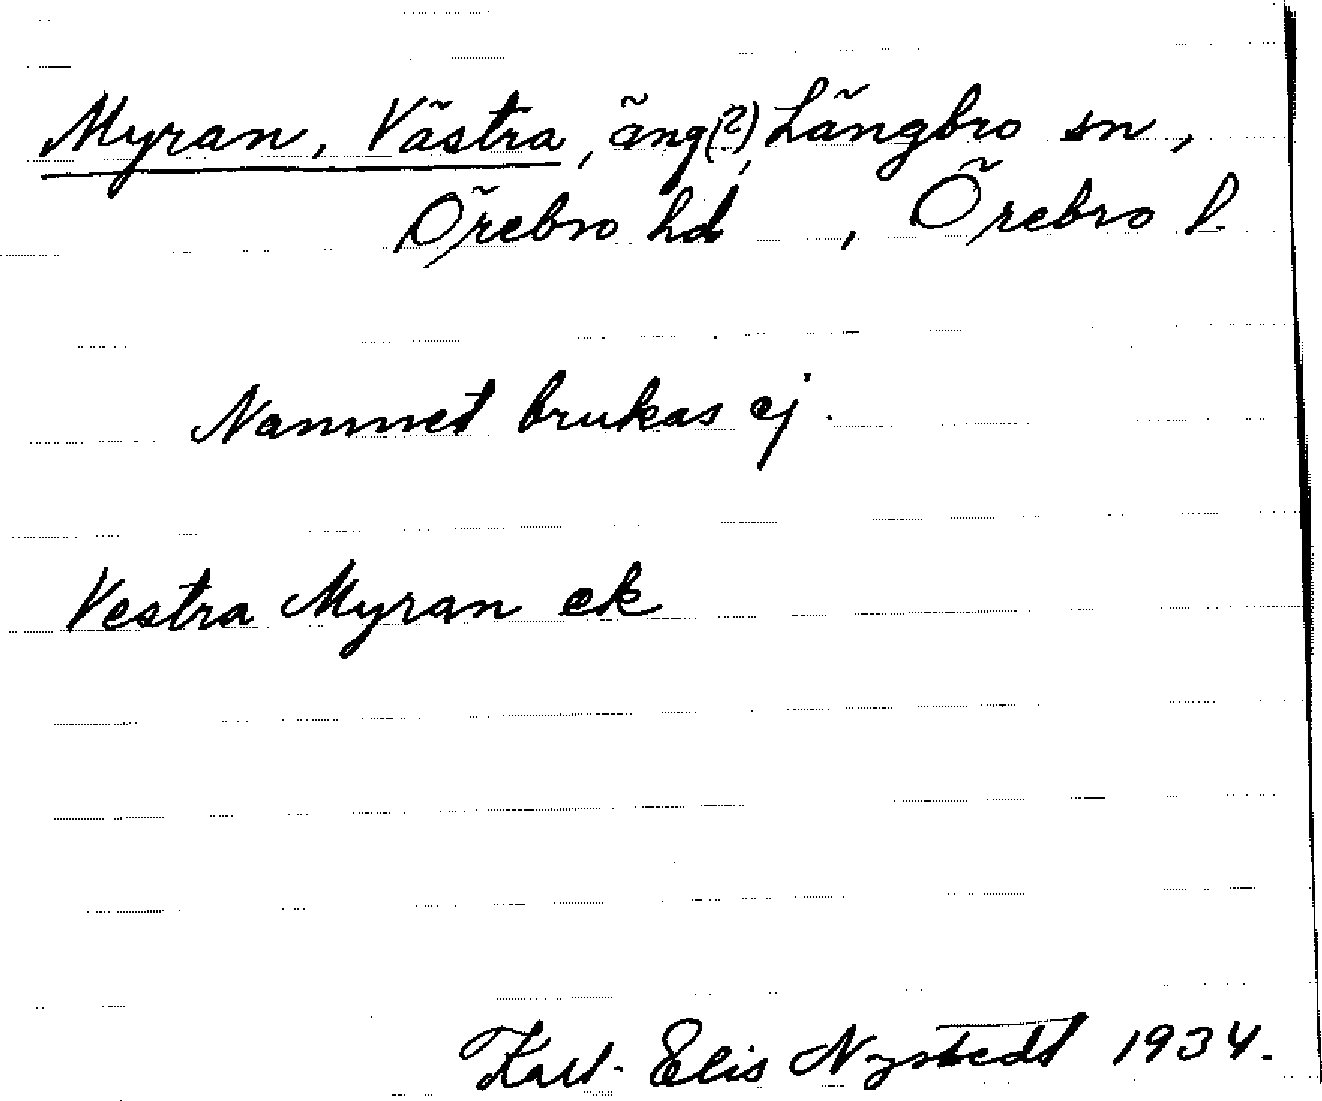 Myran, Västra, äng(?), Längbro sn,
Örebro hd, Örebro l.
Namnet brukas ej.
Vestra Myran ek
Karl-Elis Nystedt 1934.